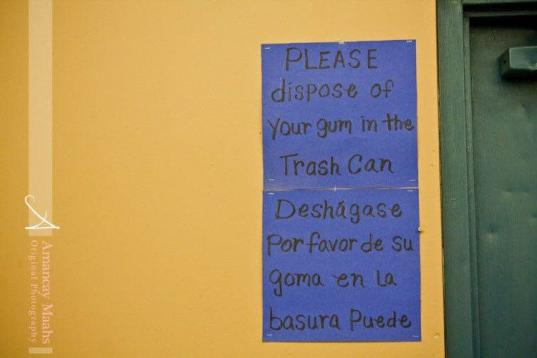 PLEASE
dispose of
Your gum in the
Trash Can
Deshágase
Por favor de su
goma en La
basura Puede
Amancay Maahs
Original Photography